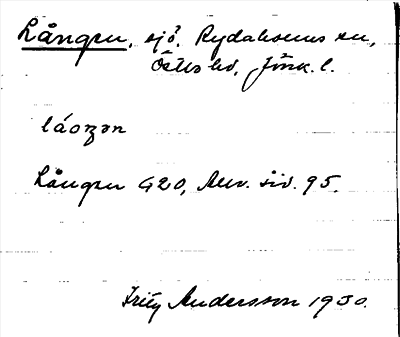 Lången, sjö. Rydaholms sn,
Östbo hd, Jönk. l.
láoŋən
Lången G20, Även. sid. 95.
Fritz Andersson 1930.